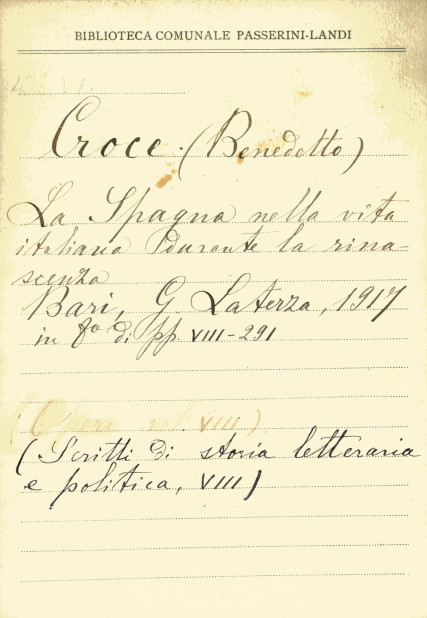 BIBLIOTECA COMUNALE PASSERINI-LANDI
Croce. (Benedetto)
La Spagna nella vita
italiana durante la rina-
scenza
Bari, G. Laterza, 1917
in 8º di pp. VIII-291
(Opere VIII)
(Scritti di storia letteraria
e politica, VIII)